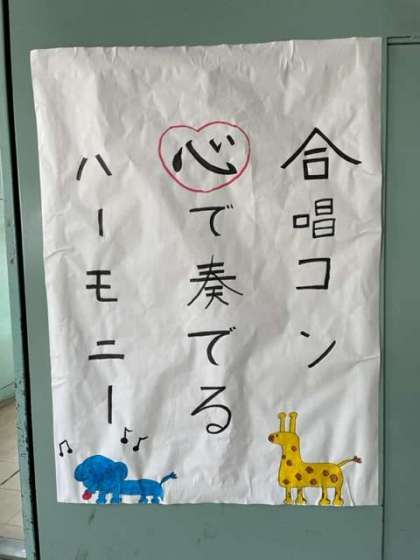 合唱コン
心で奏でる
ハーモニー